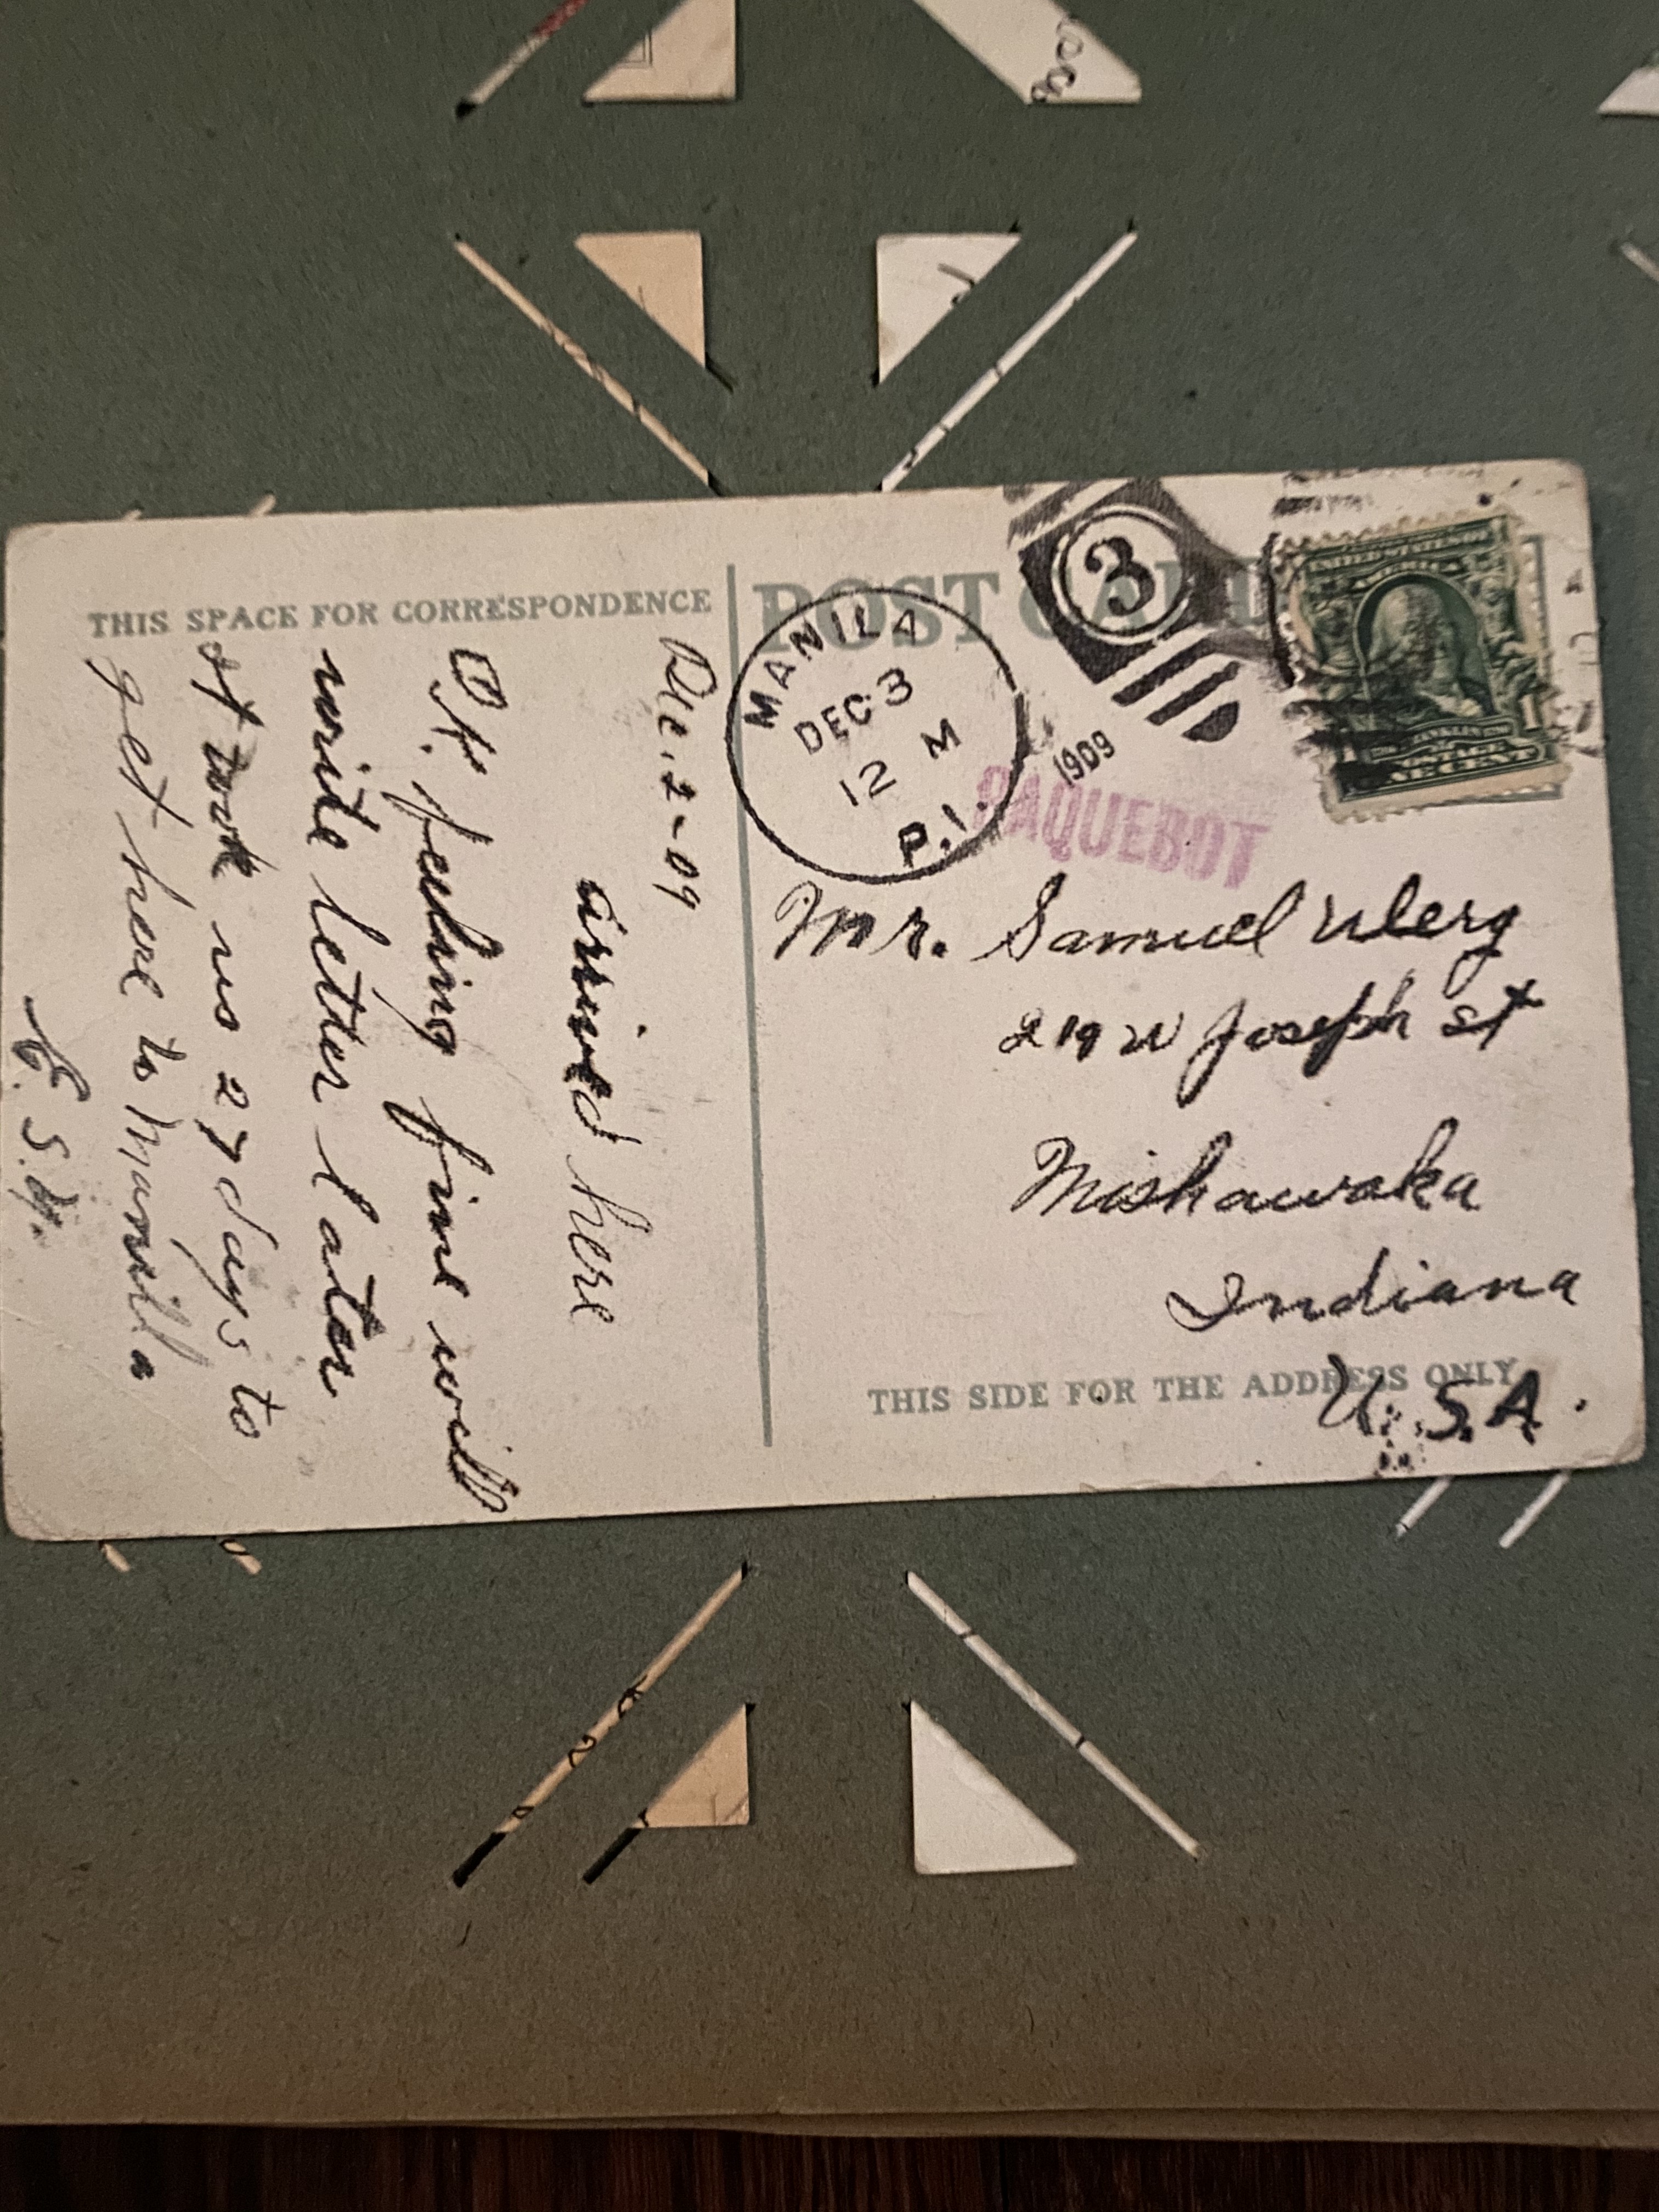 THIS SPACE FOR CORRESPONDENCE
POST CARD
MANILA
DEC 3
12 M
P.I.
1909
3
PAQUEBOT
UNITED STATES OF
AMERICA
FRANKLIN
ONE CENT
Dec. 2-09
arrived here
O.K. feeling fine will
write letter later
it took us 27 days to
get here to Manilla
Mr. Samuel
219 W Joseph St
Mishawaka
Indiana
U.S.A.
THIS SIDE FOR THE ADDRESS ONLY